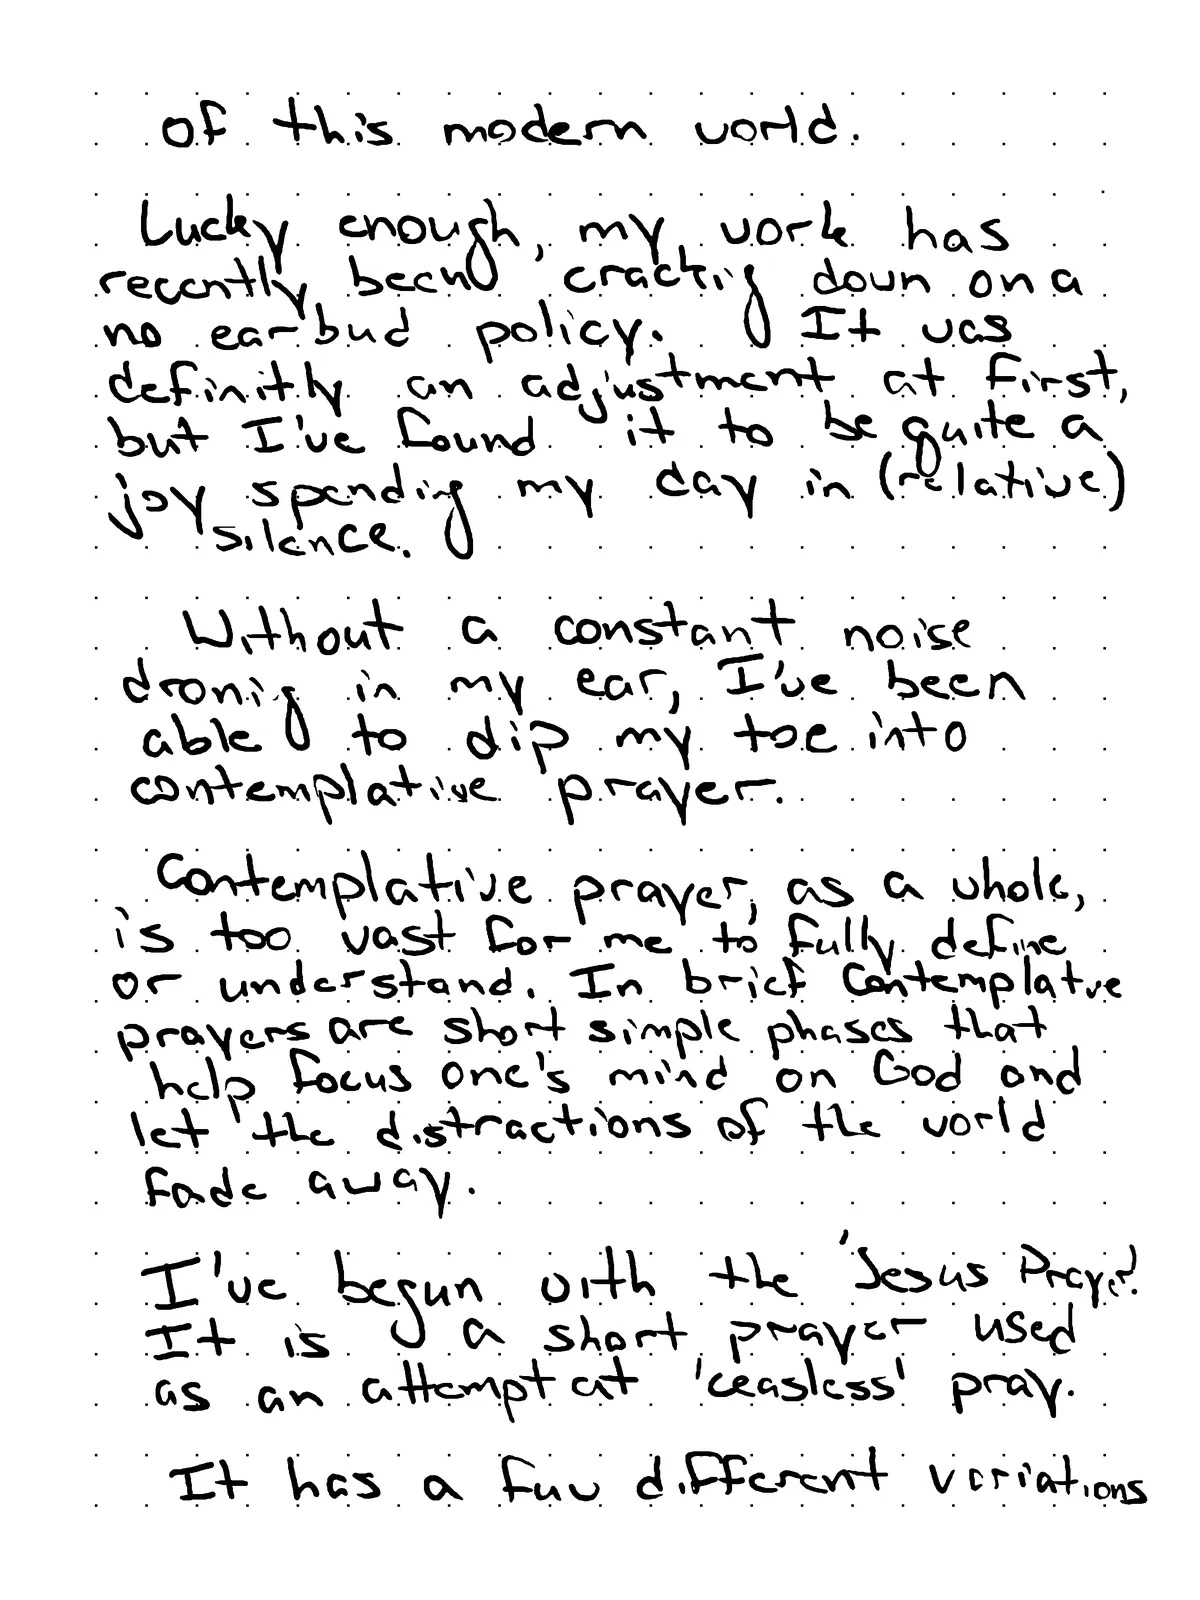 of this modern world.
Lucky enough, my work has
recently been crackig down on a
no earbud policy. It was
definitly an adjustment at first,
but I've found it to be quite a
joy spendig my day in (relative)
silence.
Without a constant noise
dronig in my ear, I've been
able to dip my toe into
contemplative prayer.
Contemplative prayer, as a whole,
is too vast for me to fully define
or understand. In brief Contemplatve
prayers are short simple phases that
help focus one's mind on God and
let the distractions of the world
fade away.
I've begun with the 'Jesus Prayer'.
It is a short prayer used
as an attempt at 'ceasless' pray.
It has a fuw different variations